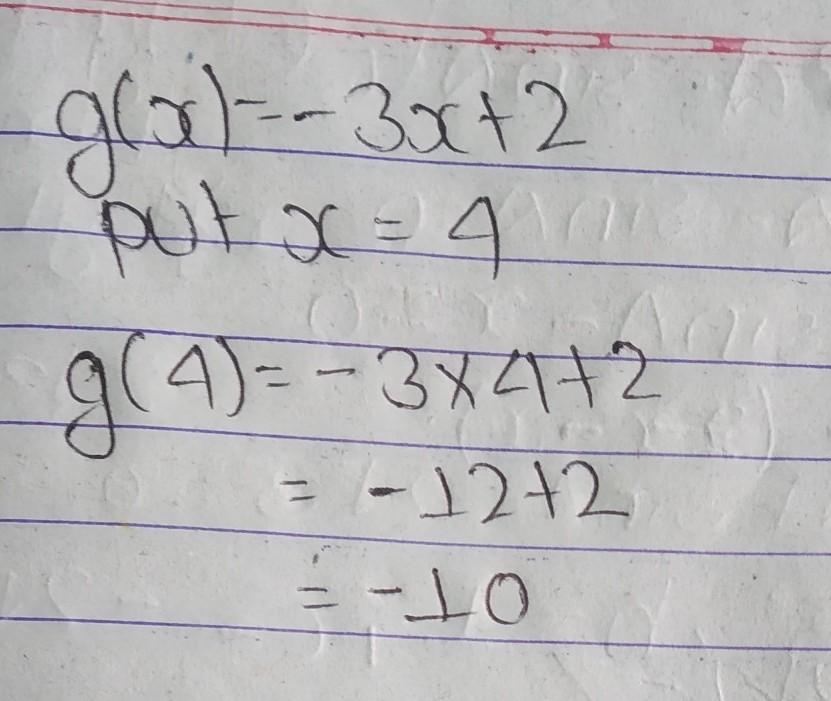 g(x)=-3x+2
put x = 4
g(4)=-3×4+2
= -12+2
= -10